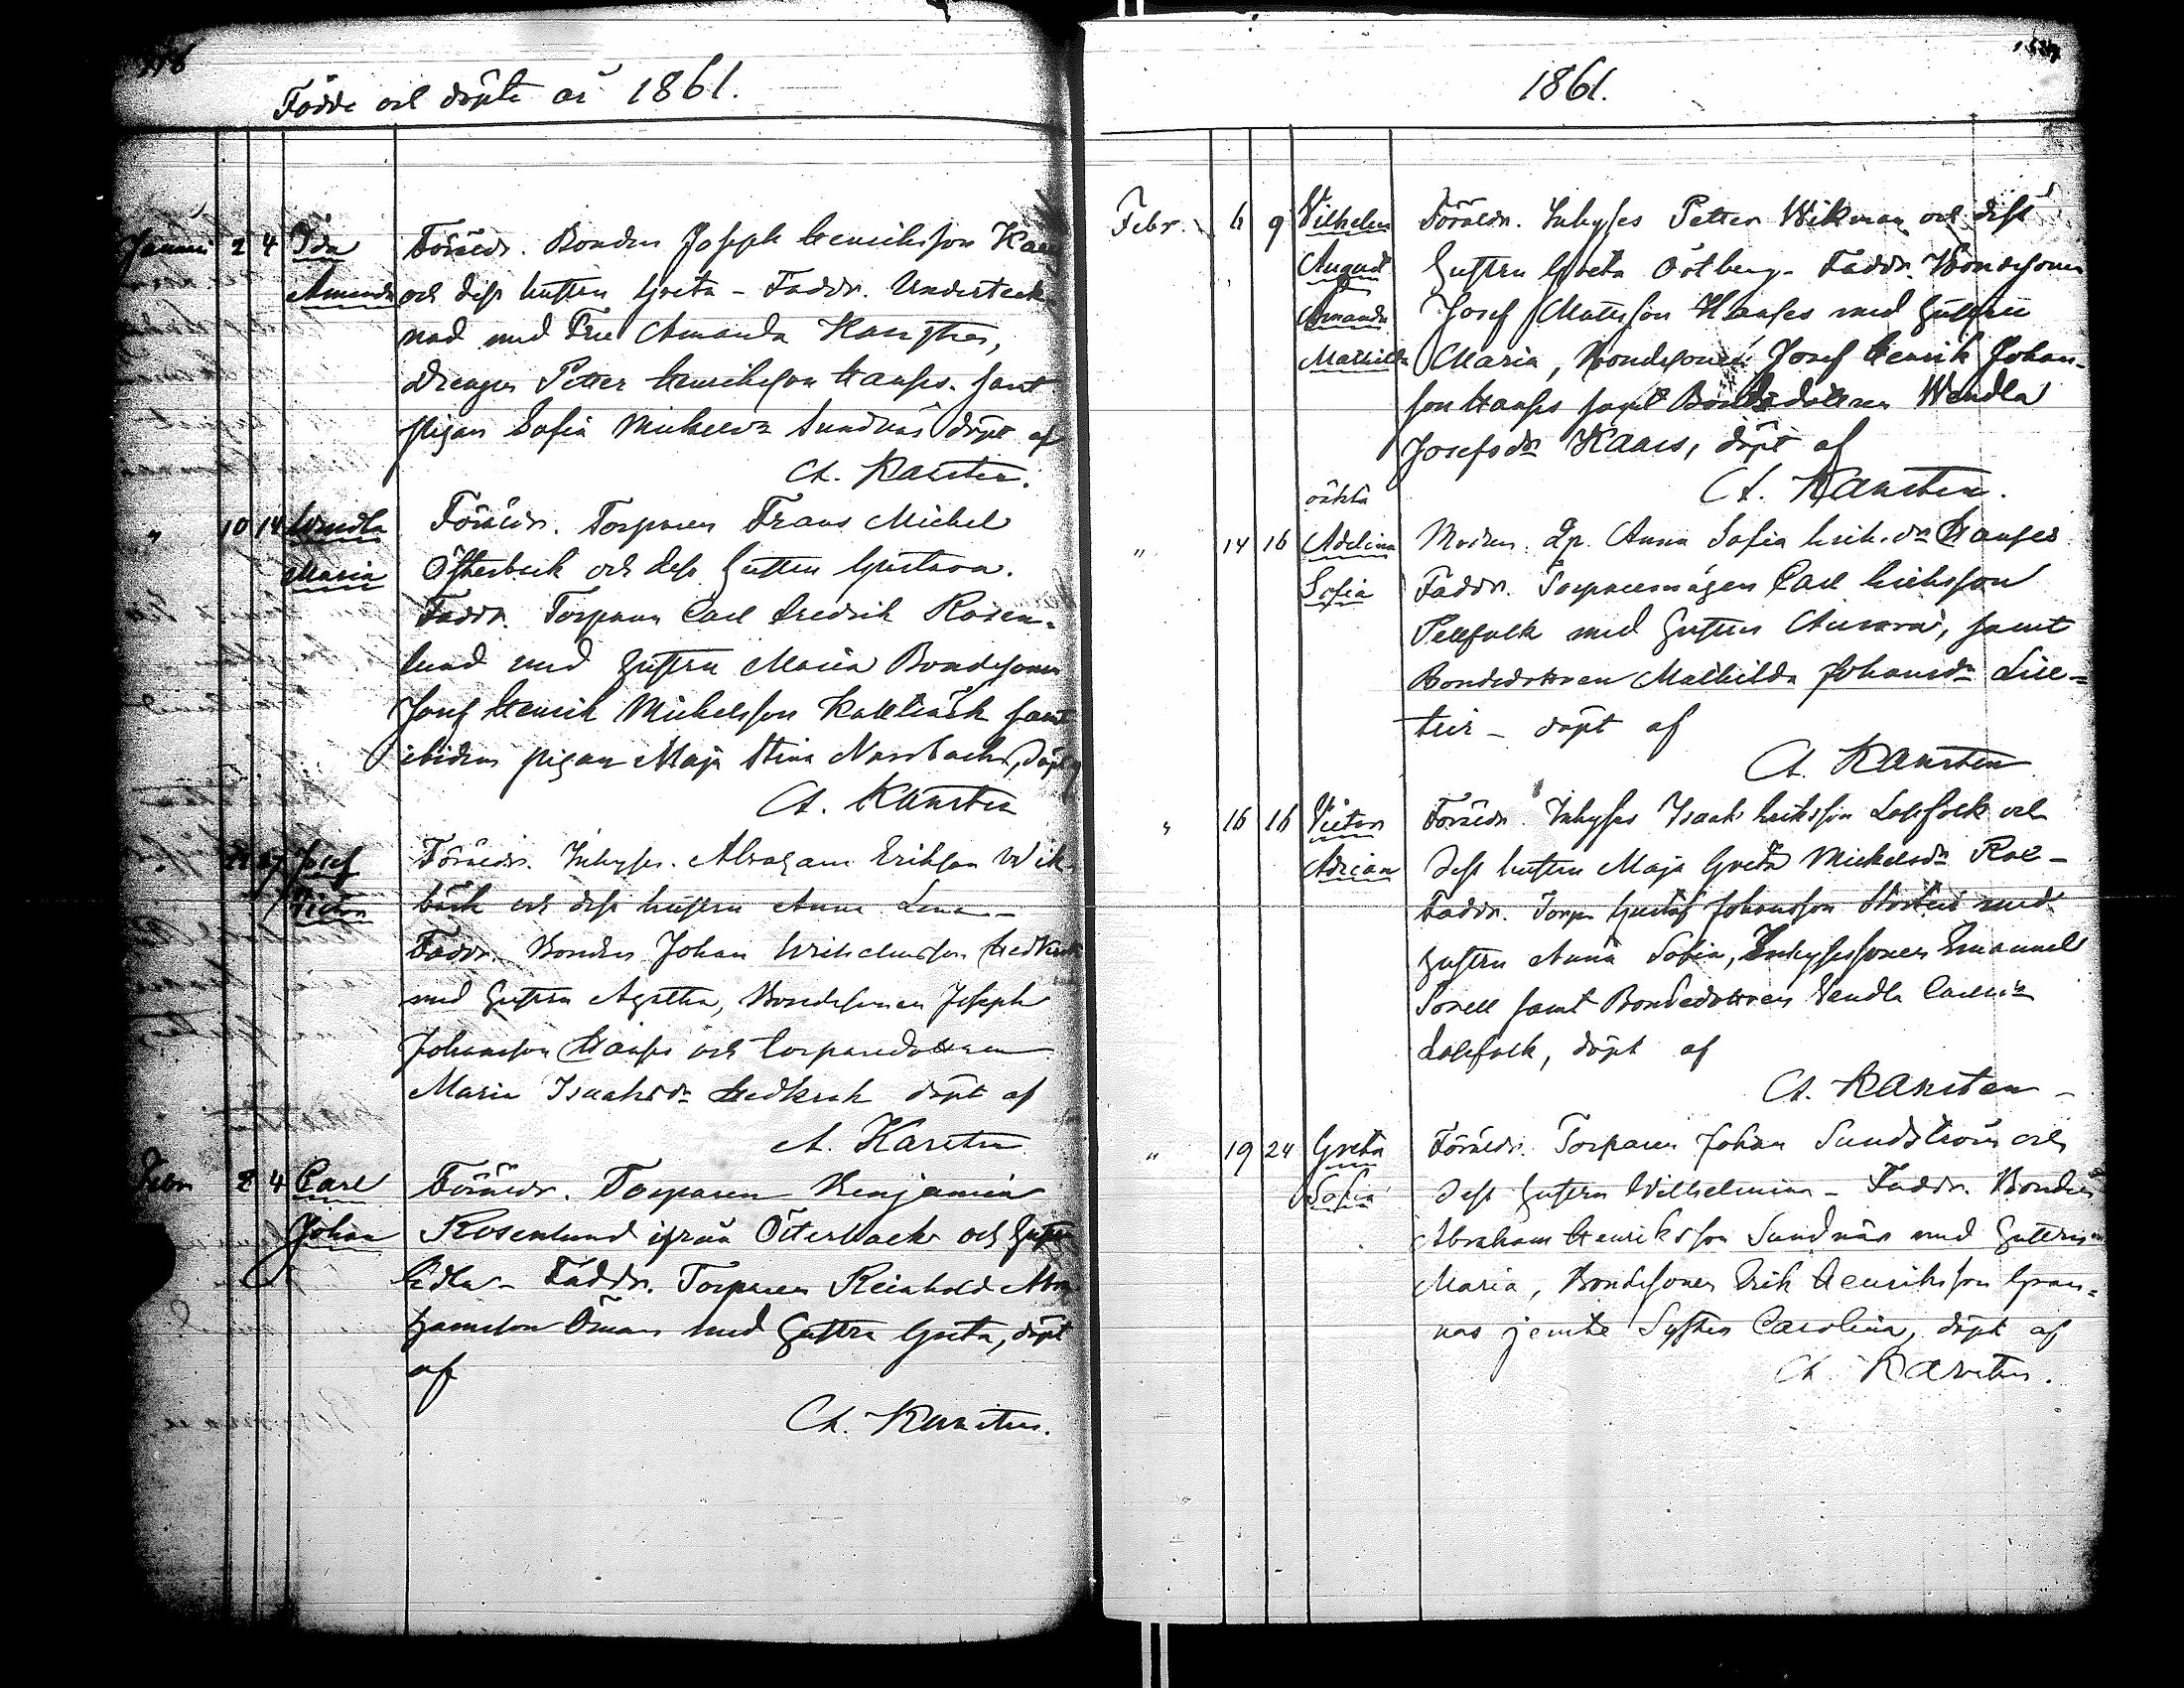 Födde och döpte år 1861.
Januari 2 4 Ida Föräldr. Bonden Joseph Henriksson Kaars
Amanda och dess hustru Greta – Faddr. Underteck-
nad med Fru Amanda
Drengen Petter Henriksson Hanses samt
pigan Sofia Michelsdr Sundnäs döpt af
A. Karsten.
" 10 14 Wendla Föräldr. Torparen Frans Michel
Maria Österback och dess Hustru Gustava.
Faddr. Torparen Carl Fredrik Rosen-
lund med Hustru Maria Bondesonen
Josef Henrik Michelsson Kallträsk samt
ibidem pigan Maja Stina Norrback, döpt af
A. Karsten
27 Josef Föräldr. Inhyses. Abraham Erikson Wik-
Victor bäck och dess hustru Anna Lena –
Faddr. Bonden Johan Wilhelmsson
med Hustru Agatha, Bondesonen Joseph
Johansson Hanses och torparedottren
Maria Isaksdr döpt af
A. Karsten
Febr 2 4 Carl Föräldr. Torparen Benjamin
Johan Rosenlund ifrån Ötterback och Hustru
Faddr. Torparen Reinhold Abra-
hamsson Öman med Hustru Greta, döpt
af
A. Karsten.
1861.
Febr. 6 9 Vilhelm Föräldr. Inhyses Petter Wikman och dess
August Hustru Greta Östberg – Faddr. Bondesonen
Amandus Josef Mattsson Hanses med Hustru
Maria, Bondesonen Josef Henrik Johans-
son Hanses samt Bondedottren Wendla
Josefsdr Kaars, döpt af
A. Karsten.
oäkta
" 14 16 Adelina Modren. Qp. Anna Sofia Erik.dr Hanses
Sofia Faddr. Torparemågen Carl Eriksson
Pellfolk med Hustru Aurora, samt
Bondedottren Mathilda Johansdr Lill-
teir – döpt af
A. Karsten
" 16 16 Victor Föräldr. Inhyses Isaak Eriksson Lassfolk och
Adrian dess hustru Maja Greta Michelsdr
Faddr. Torp. Gustaf Johansson Storteir med
Hustru Anna Sofia, Inhysessonen Emanuel
samt Bondedottren Wendla Carlsdr
Lassfolk, döpt af
A. Karsten –
" 19 24 Greta Föräldr. Torparen Johan Sundström och
Sofia dess Hustru Wilhelmina – Faddr. Bonden
Abraham Henriksson Sundnäs med Hustrun
Maria, Bondesonen Erik Henriksson Gran-
nas jemte Syster Carolina, döpt af
A. Karsten.